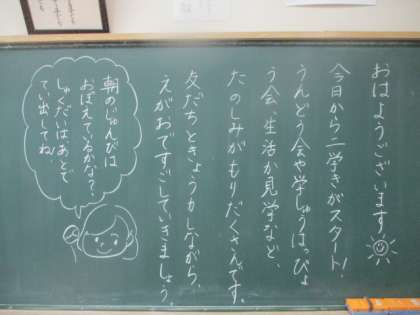 おはようございます
今日から二学きがスタート!
うんどう会や学しゅうはっぴょ
う会、生活か見学など、
たのしみがもりだくさんです。
友だちときょう力しながら、
えがおですごしていきましょう。
朝のじゅんびは
おぼえているかな?
しゅくだいはあとで
てい出してね!